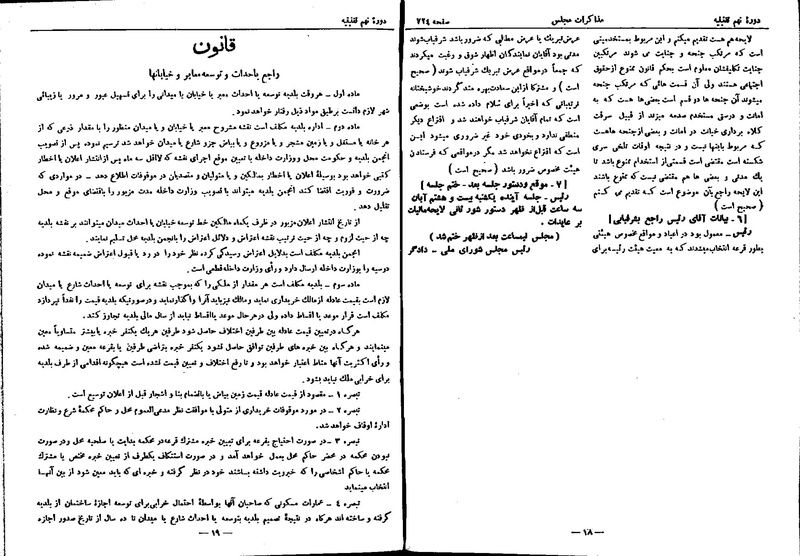 دورهٔ نهم تقنینیه
مذاکرات مجلس
صفحه ۷۲۴
لایحه هم هست تقدیم میکنم و این مربوط بمستخدمینی
است که مرتکب جنحه و جنایت می شوند مرتکبین
جنایت تکلیفشان معلوم است بحکم قانون ممنوع ازحقوق
اجتماعی هستند ولی آن قسمت هائی که مرتکب جنحه
میشوند آن جنحه ها دو قسم است بعضی ها هست که به
امانت و درستی مستخدم صدمه میزند از قبیل سرقت
کلاه برداری خیانت در امانت و بعضی ازجنحه هاهست
که مربوط باینها نیست و در نتیجه اوقات تلخی سری
شکسته است مقتضی است قسمتی از استخدام ممنوع باشد تا
یک مدتی و بعضی ها هم مقتضی نیست که ممنوع باشند
این لایحه راجع باین موضوع است که تقدیم می کنم
( صحیح است )
[ ۶ - بیانات آقای رئیس راجع بشرفیابی ]
رئیس ـ معمول بود در اعیاد و مواقع مخصوص هیئتی
بطور قرعه انتخاب میشدند که به معیت هیئت رئیسه برای
عرض تبریک یا عرض مطالبی که ضرور باشد شرفیاب شوند
مدتی بود آقایان نمایندگان اظهار شوق و رغبت میکردند
که جمعاً در مواقع عرض تبریک شرفیاب شوند ( صحیح
است ) و مشترکاً از این سعادت بهره مند گردند خوشبختانه
ترتیباتی که اخیراً برای سلام داده شده است بوضعی
است که تمام آقایان شرفیاب خواهند شد و اقتراع دیگر
منطقی ندارد و بخودی خود غیر ضروری میشود این
است که اقتراع نخواهد شد مگر در مواقعی که فرستادن
هیئت مخصوص ضرور باشد ( صحیح است )
[ ۷ - موقع و دستور جلسه بعد - ختم جلسه ]
رئیس - جلسه آینده یکشنبه بیست و هشتم آبان
سه ساعت قبل از ظهر دستور شود ثانی لایحه مالیات
بر عایدات .
( مجلس نیمساعت بعد از ظهر ختم شد )
رئیس مجلس شورای ملی - دادگر
ـ ۱۸ ـ
دورهٔ نهم تقنینیه
قانون
راجع باحداث و توسعه معابر و خیابانها
ماده اول ـ هر وقت بلدیه احداث و توسعه معبر یا خیابان یا میدانی را برای تسهیل عبور و مرور یا زیبائی
شهر لازم دانست بر طبق مواد ذیل رفتار خواهد نمود.
ماده دوم ـ اداره بلدیه مکلف است نقشه مشروح معبر یا خیابان و یا میدان منظور را با مقدار ذرعی که از
هر خانه یا مستغل و یا زمین مشجر و یا مزروع و یا بیاض جزو شارع یا میدان خواهد شد ترسیم نموده پس از تصویب
انجمن بلدیه و حکومت محل و وزارت داخله با تعیین موقع اجرای نقشه که لااقل سه ماه پس از انتشار اعلان یا اخطار
کتبی خواهد بود بوسیلهٔ اعلان یا اخطار بمالکین و یا متولیان و متصدیان در موقوفات اطلاع دهد ـ در مواردی که
ضرورت و فوریت اقتضا کند انجمن بلدیه میتواند با تصویب وزارت داخله مدت مزبور را باقتضای موقع و محل
تقلیل دهد .
از تاریخ انتشار اعلان مزبور در ظرف یکماه مالکین خط توسعه خیابان یا احداث میدان میتوانند بر نقشه بلدیه
چه از حیث لزوم و چه از حیث ترتیب نقشه اعتراض و دلائل اعتراض را بانجمن بلدیه محل تسلیم نمایند .
انجمن بلدیه مکلف است بدلایل اعتراض رسیدگی کرده نظر خود را در رد یا قبول اعتراض ضمیمه نقشه نموده
دوسیه را بوزارت داخله ارسال دارد و رأی وزارت داخله قطعی است .
ماده سوم ـ بلدیه مکلف است هر مقدار از ملکی را که بموجب نقشه برای توسعه یا احداث شارع یا میدان
لازم است بقیمت عادله از مالک خریداری نماید و مالک نیز باید آنرا واگذار نماید و در صورتیکه بلدیه قیمت را نقداً نپردازد
مکلف است قرار موعد یا اقساط داده ولی در هر حال موعد یا اقساط نباید از سال مالی بلدیه تجاوز کند .
هرگاه در تعیین قیمت عادله بین طرفین اختلاف حاصل شود طرفین هر یک یکنفر خبره یا بیشتر متساویاً معین
مینمایند و هرگاه بین خبره های طرفین توافق حاصل نشود یکنفر خبره بتراضی طرفین یا بقرعه معین و ضمیمه شده
و رأی اکثریت آنها مناط اعتبار خواهد بود و تا رفع اختلاف و تعیین قیمت نشده است هیچگونه اقدامی از طرف بلدیه
برای خرابی ملک نباید بشود .
تبصره ۱ ـ مقصود از قیمت عادله قیمت زمین بیاض یا بانضمام بنا و اشجار قبل از اعلان توسیع است .
تبصره ۲ ـ در مورد موقوفات خریداری از متولی با موافقت نظر مدعی العموم محل و حاکم محکمهٔ شرع و نظارت
ادارهٔ اوقاف خواهد شد.
تبصره ۳ ـ در صورت احتیاج بقرعه برای تعیین خبره مشترک قرعه در محکمه بدایت یا صلحیه محل و در صورت
نبودن محکمه در محضر حاکم محل بعمل خواهد آمد و در صورت استنکاف یکطرف از تعیین خبره مختص یا مشترک
محکمه یا حاکم اشخاصی را که خبرویت داشته باشند خود در نظر گرفته و خبره ای که باید معین شود از بین آنها
انتخاب مینماید
تبصره ۴ ـ عمارات مسکونی که صاحبان آنها بواسطهٔ احتمال خرابی برای توسعه اجازهٔ ساختمان از بلدیه
گرفته و ساخته اند هرگاه در نتیجهٔ تصمیم بلدیه بتوسعه یا احداث شارع یا میدان تا ده سال از تاریخ صدور اجازه
ـ ۱۹ ـ